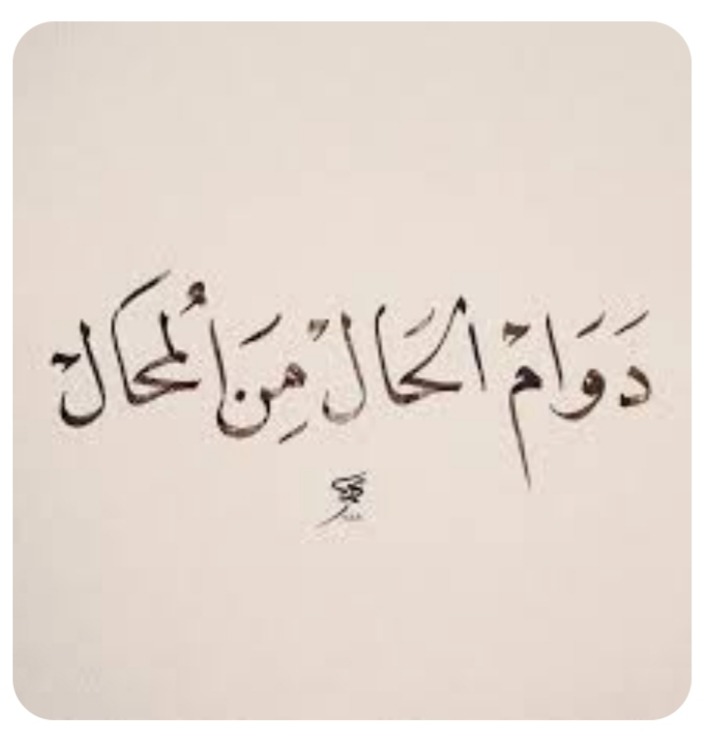 دَوَامْ الحَالْ مِنَ اْلمُحَالْ